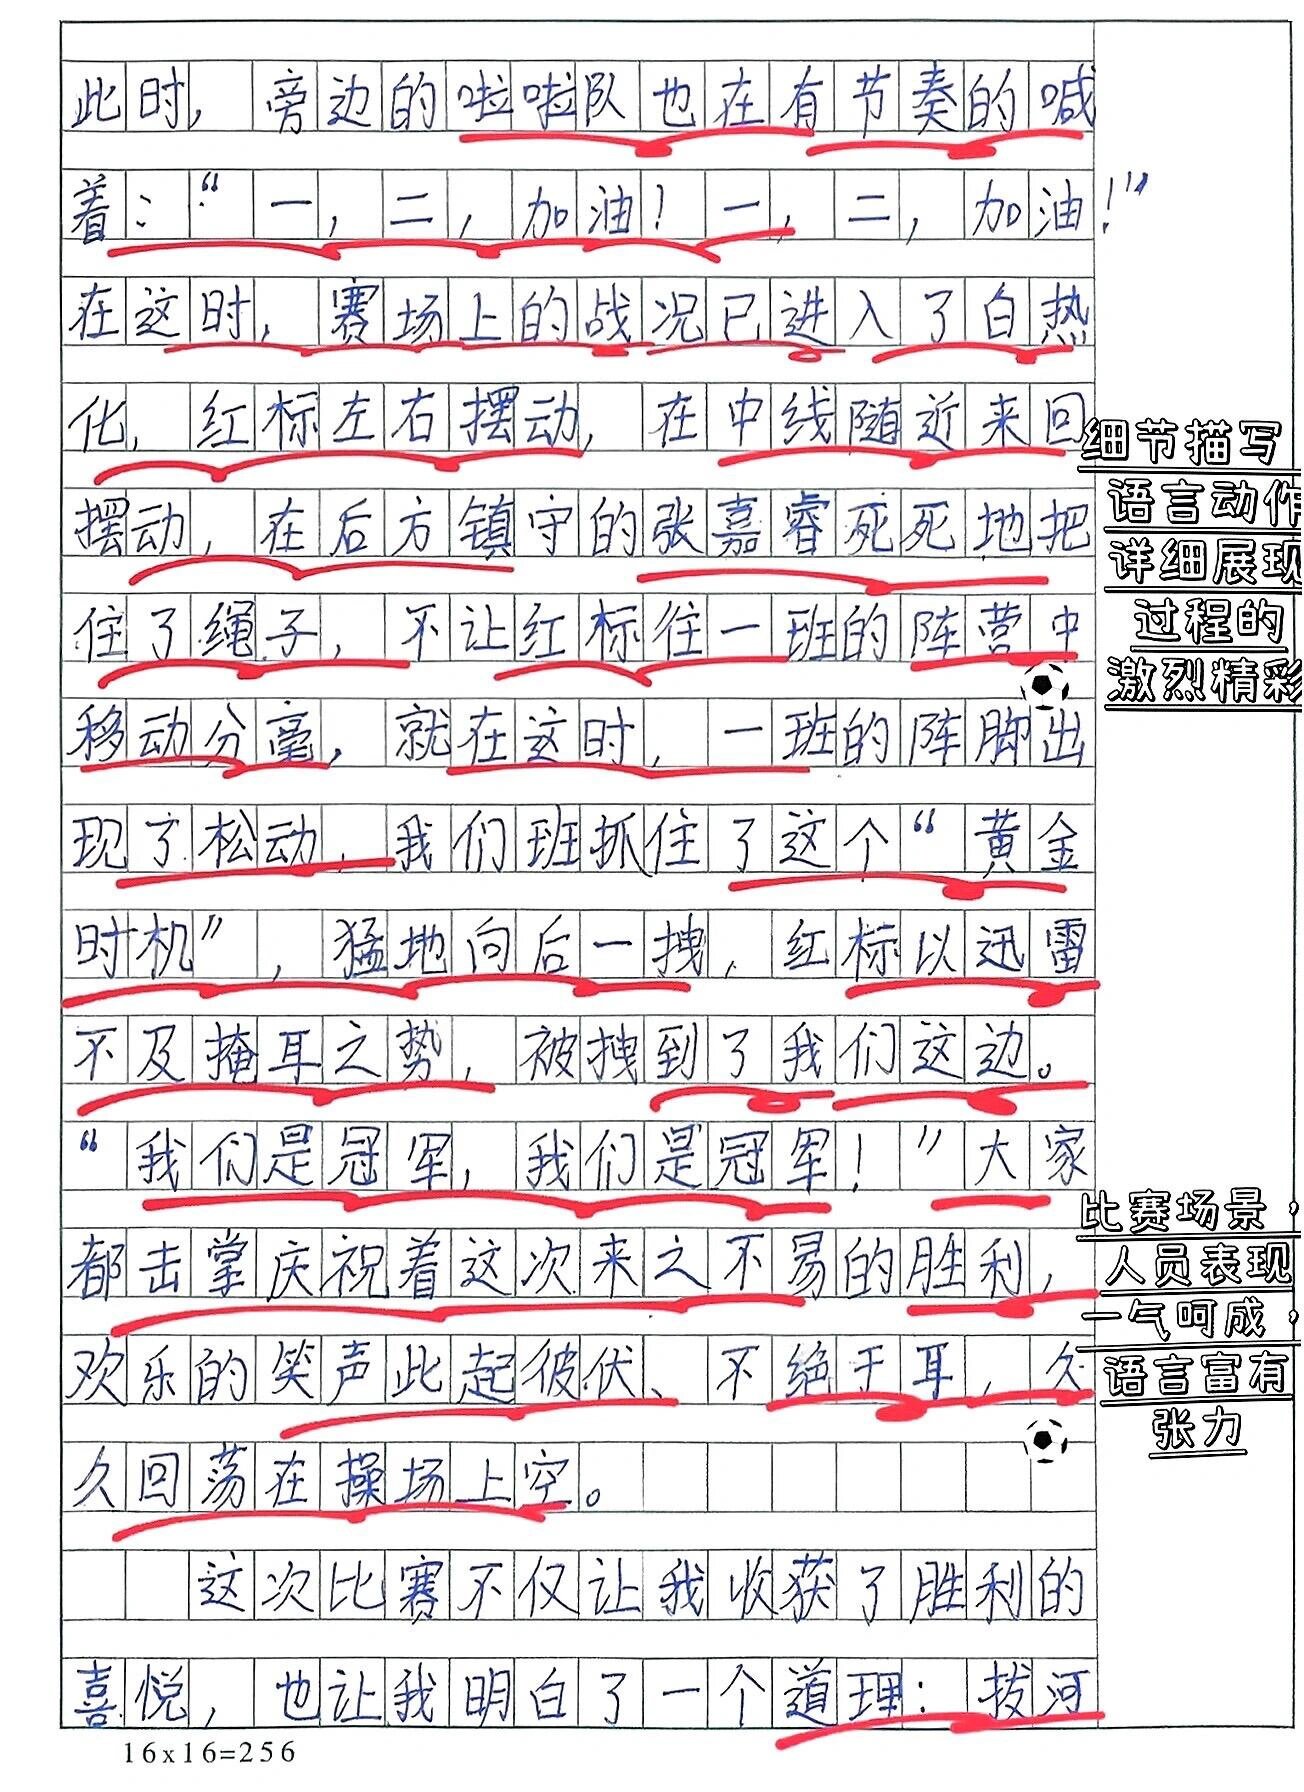 此时,旁边的啦啦队也在有节奏的喊
着:“一,二,加油!一,二,加油!”
在这时,赛场上的战况已进入了白热
化,红标左右摆动,在中线随近来回
摆动,在后方镇守的张嘉睿死死地把
住了绳子,不让红标往一班的阵营中
移动分毫,就在这时,一班的阵脚出
现了松动,我们班抓住了这个“黄金
时机”,猛地向后一拽,红标以迅雷
不及掩耳之势,被拽到了我们这边。
“我们是冠军,我们是冠军!”大家
都击掌庆祝着这次来之不易的胜利,
欢乐的笑声此起彼伏、不绝于耳,久
久回荡在操场上空。
这次比赛不仅让我收获了胜利的
喜悦,也让我明白了一个道理:拔河
16x16=256
细节描写
语言动作
详细展现
过程的
激烈精彩
比赛场景,
人员表现
一气呵成,
语言富有
张力